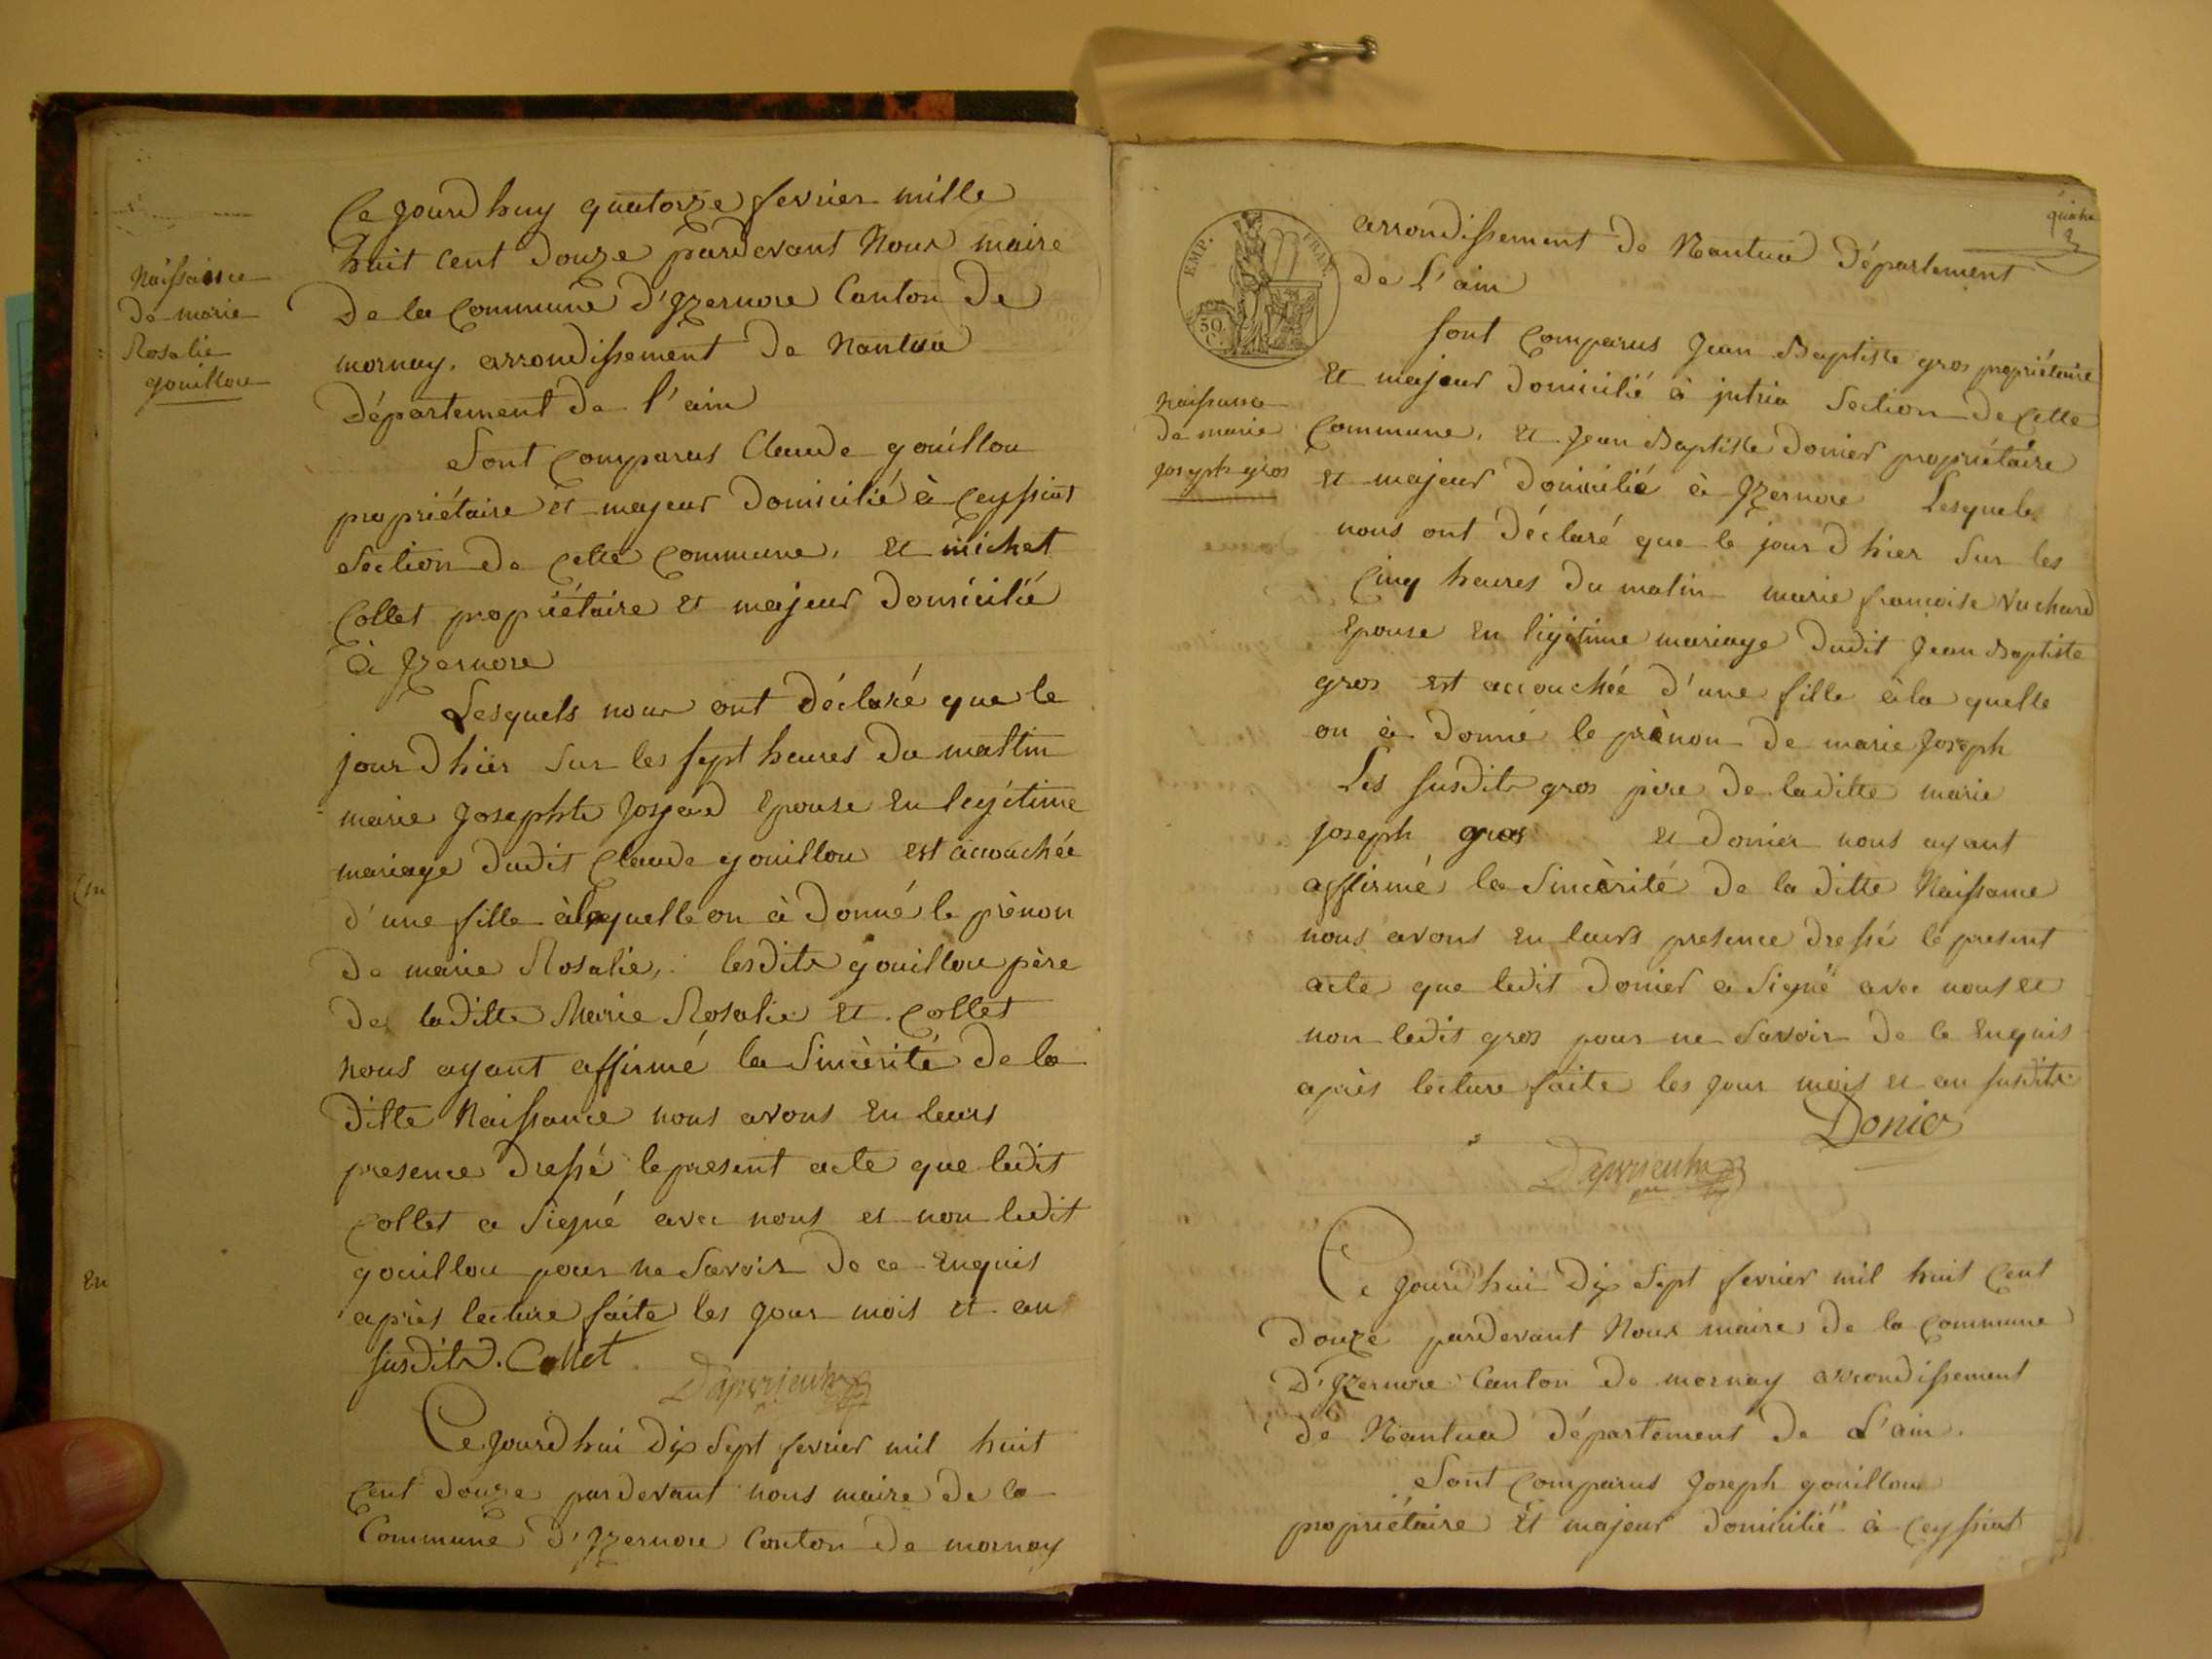 Naissance
de marie
Rosalie
gouillou
Ce jourdhuy quatorze fevrier mille
huit cent douze pardevant Nous maire
De la Commune d'Jzernore Canton de
mornay. arrondissement de Nantua
Département de l'ain
Sont Comparus Claude gouillou
propriétaire et majeur Domicilié à Ceyssiat
Section de Cette Commune, Et michet
Collet propriétaire Et majeur Domicilié
à Jzernore
Lesquels nous ont déclaré que le
jour d hier sur les sept heures du mattin
marie Josephte Josjard Epouse En legitime
mariage dudit Claude gouillou est accouchée
d'une fille àlaquelle on à Donné le prènon
de marie Rosalie, lesdits gouillou père
de laditte Marie Rosalie Et Collet
nous ayant affirmé la Sincèrité de la
ditte Naissance nous avons En leurs
presence dressé le present acte que ledit
Collet a Signé avec nous et non ledit
gouillou pour ne Savoir de ce Enquis
après lecture faite les jour mois et an
susdits. Collet
Ce jourdhui dix Sept fevrier mil huit
Cent douze pardevant nous maire de la
Commune d'Jzernore Canton de mornay
En
quatre
EMP. FRAN.
50 C.
arrondissement de Nantua Département
de l'ain
Naissance
de marie
joseph gros
sont Comparus Jean Baptiste gros propriétaire
Et majeur domicilié à jutria Section de Cette
Commune, Et Jean Baptiste Donier propriétaire
et majeur Domicilié à Jzernore Lesquels
nous ont déclaré que le jour d hier Sur les
Cinq heures du matin marie francoise Vuchard
Epouse En ligitime mariage dudit Jean Baptiste
gros est accouchée d'une fille àla quelle
on à Donné le prènon de marie Joseph
Les susdits gros père de laditte marie
Joseph gros et donier nous ayant
affirmé la Sincèrité de la ditte Naissance
nous avons En leurs presence dressé le present
acte que ledit donier a Signé avec nous et
non ledit gros pour ne Savoir de ce Enquis
après lecture faite les jour mois et an susdits
Donier
Ce jourdhui Dix Sept fevrier mil huit Cent
douze pardevant Nous maire de la Commune
d'Jzernore Canton de mornay arrondissement
de Nantua département de L'ain.
Sont Comparus Joseph gouillou
propriétaire Et majeur domicilié à Ceyssiat